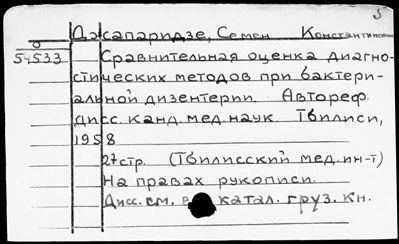 Джапаридзе, Семен Константинович
54533 Сравнительная оценка диагно-
стических методов при бактери-
альной дизентерии. Автореф.
дисс. канд. мед. наук. Тбилиси,
1958
27 стр. (Тбилисский мед. ин-т)
На правах рукописи.
Дисс. см. в катал. груз. кн.